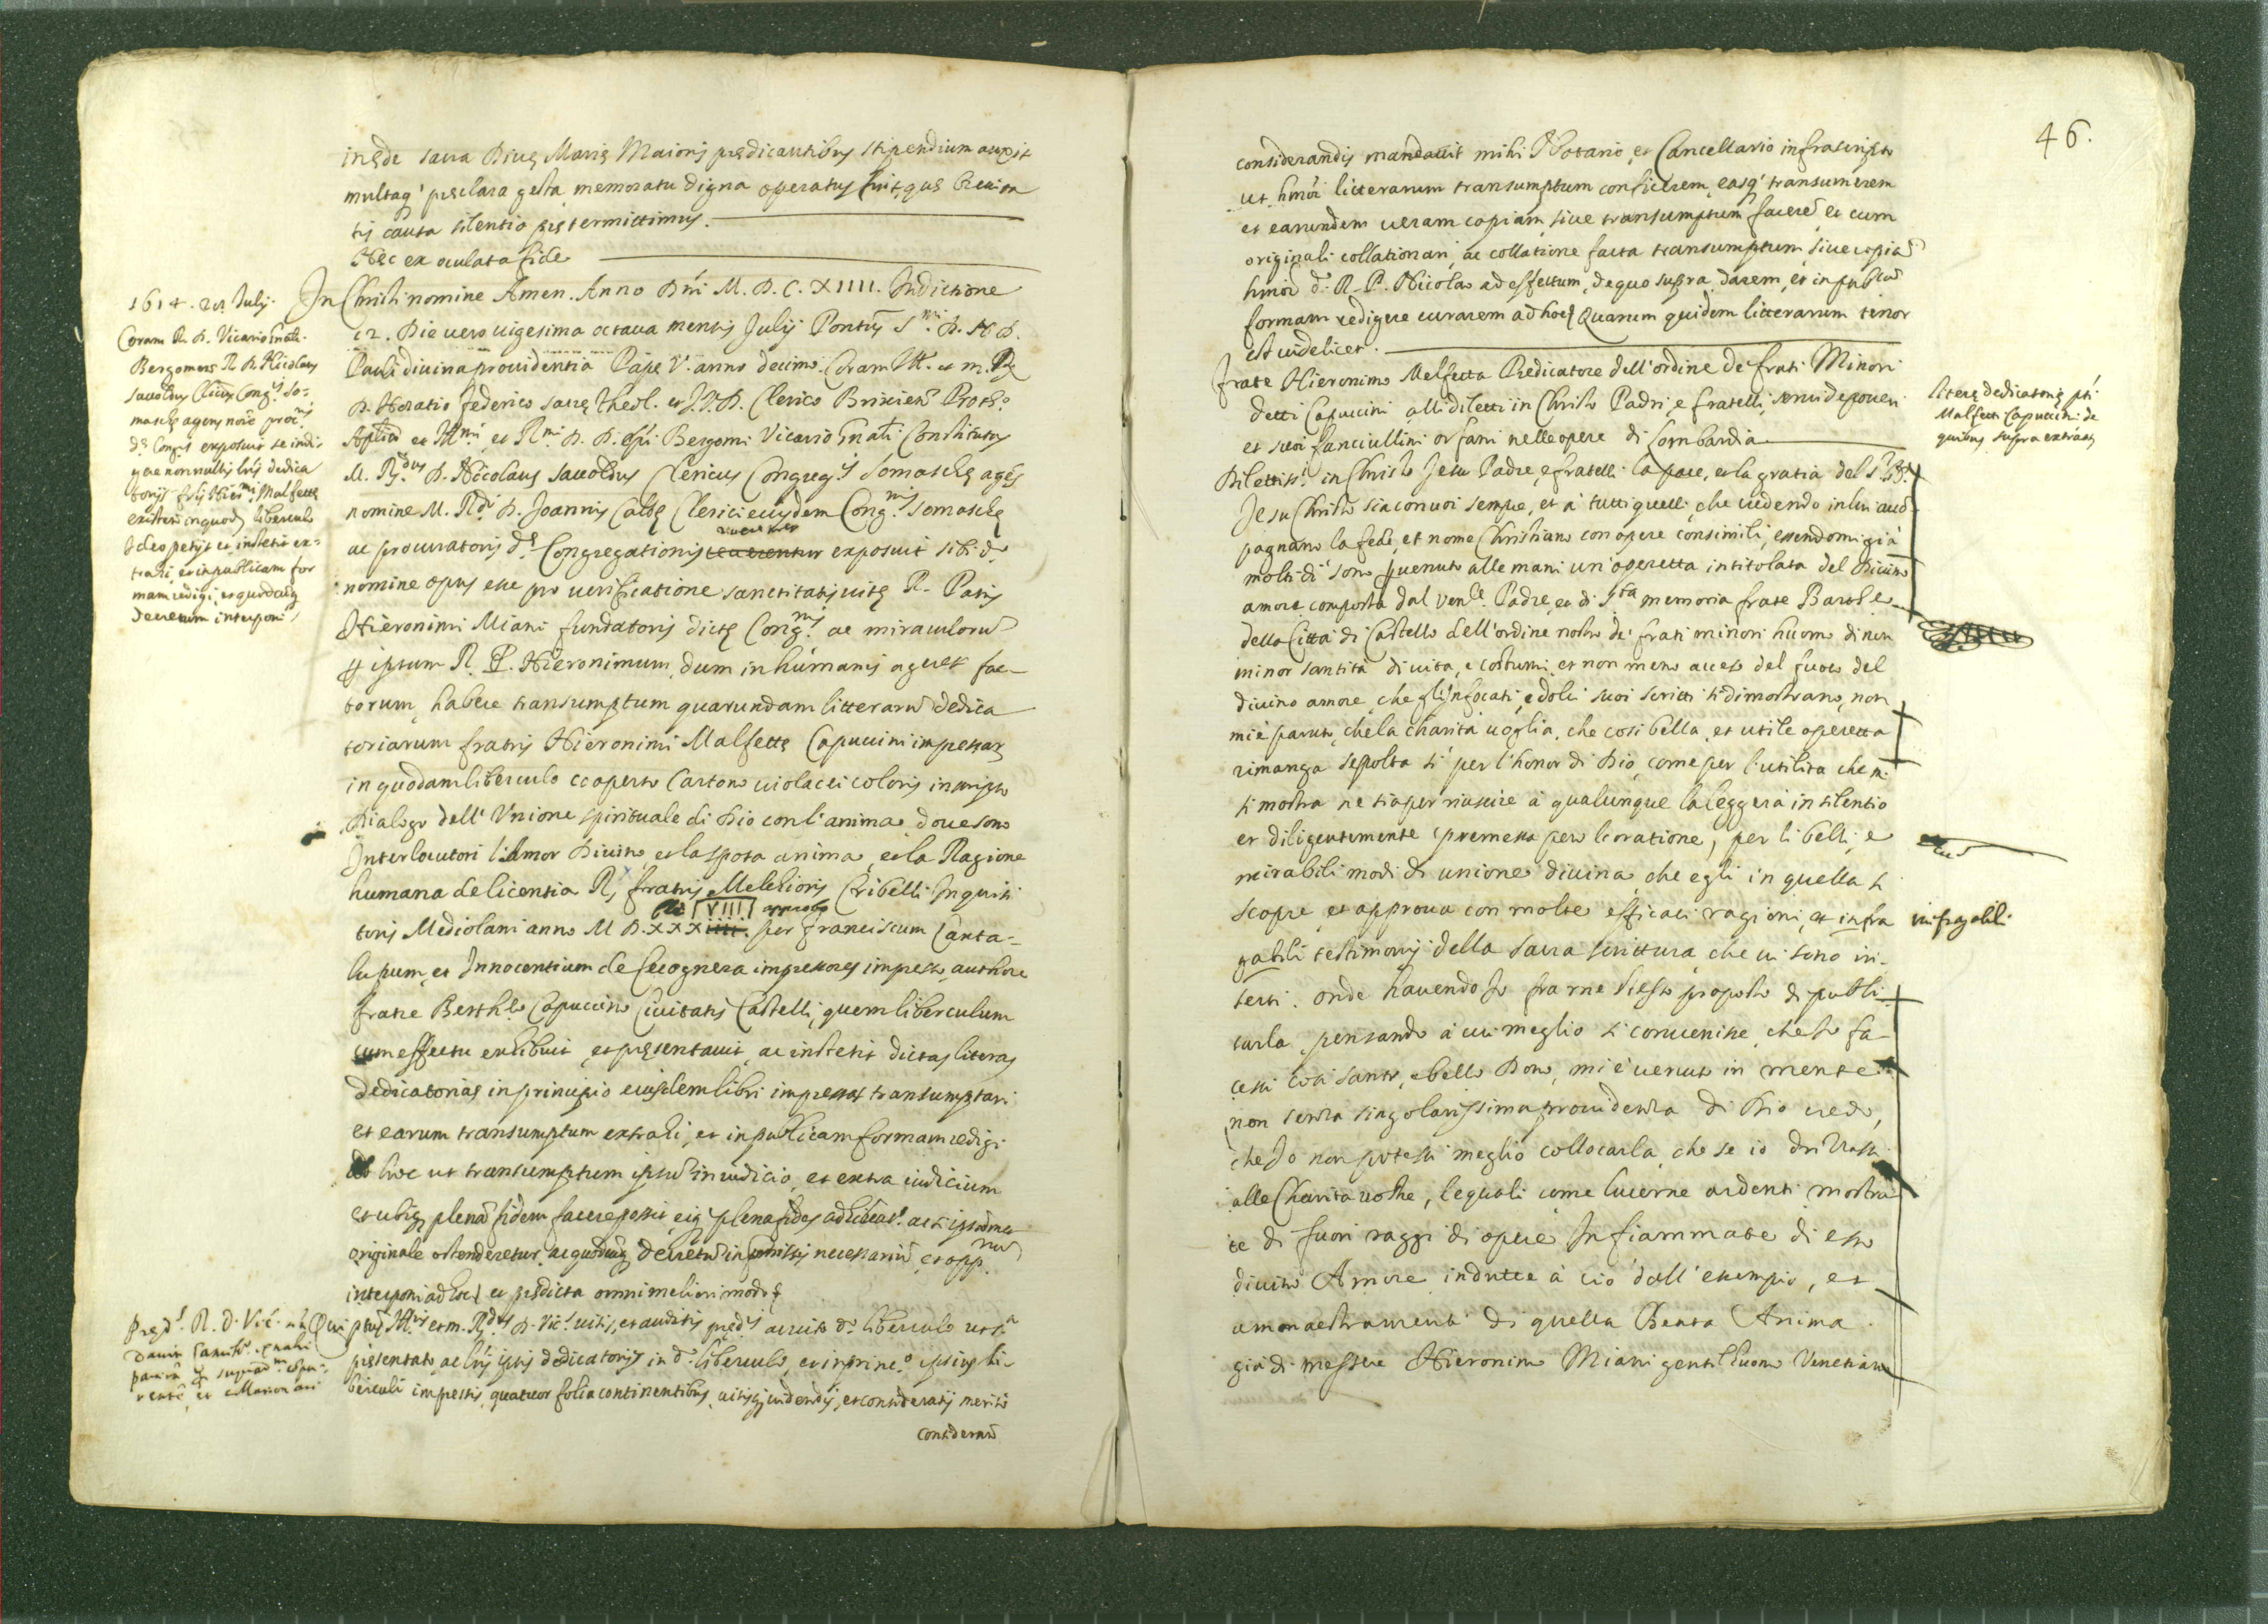 in ęde sacra Divę Marię Maioris prędicantibus stipendium auxit
multaq' pręclara gesta memoratu digna operatus fuit, quę brevita
tis causa silentio prętermittimus.
Hęc ex oculata fide
1614. 28 Julij.
Coram R. D. Vicario Gnali
Bergomen R. D. Nicolaus
Savoldus Clicus Cong.s So=
maschę agens noie procris
de Congis exposuit se indi
gere nonnullis lris dedica
torijs fris Hiermi Malfettę
existen in quodam liberculo
Ideo petijt et institit ex=
trahi, et in publicam for
mam redigi, et quodcumq
decretum interponi
In Christi nomine Amen. Anno Dni M. D. C. XIIII. Indictione
12. Die vero vigesima octava mensis Julij Pontus S.mi D. N. D.
Pauli divina providentia Papę V. anno decimo. Coram Ill. et m. Rdo
D. Horatio Federico sacrę Theol. et J. V. D. Clerico Brixien Proth.o
Aplico et Illmi et Rmi D. D. Epi Bergomi Vicario Gnali Constitutus
M. Rdus D. Nicolaus Savoldus Clericus Congreg.s Somaschę agens
nomine M. Rdi D. Joannis Calbę Clerici eiusdem Cong.nis Somaschę
ac procuratoris de Congregationis reverenter exposuit sibi do
nomine opus esse pro verificatione sanctitatis vitę R. Patris
Hieronimi Miani fundatoris dictę Cong.nis ac miraculorum
p ipsum R. P. Hieronimum, dum in humanis ageret fac-
torum, habere transumptum quarundam litterarum dedica
toriarum fratris Hieronimi Malfettę Capuccini impressar
in quodam liberculo cooperto Cartono violacei coloris inscripto
Dialogo dell' Unione spirituale di Dio con l'anima dove sono
Interlocutori l'Amor Divino, et la sposa anima, et la Ragione
humana de licentia R. fratris Melchioris Cribelli Inquisi
toris Mediolani anno M D. XXX VIIII approbo per Franciscum Canta=
lupum, et Innocentium de Cicognera impressores impresso, authore
fratre Berthlo Capuccino Civitatis Castelli, quem liberculum
cum effectu exhibuit, et pręsentavit, ac institit dictas literas
dedicatorias in principio eiusdem libri impressas transumptari
et earum transumptum extrahi, et in publicam formam redigi
ad hoc ut transumptum ipsum in iudicio, et extra iudicium
et ubiq plenam fidem facere possit, eiq plena fides adhibeat.r ac si ipsummet
originale ostenderetur, ac quodcumq decretum in pmissis necessarium et opp.num
interponi ad hoc et prędicta omni meliori modo
Pręd.s R. D. Vic.
Qui ptus Illris et m. Rdus D. Vic.s visis, et auditis pręd.s ac viso do liberculo ut s.a
pręsentato, ac lris ipsis dedicatorijs in d. liberculo, et in princ.o ipsius li-
berculi impressis, quatuor folia continentibus, visisq videndis, et consideratis meritis
consideran
46.
considerandis mandavit mihi Notario, et Cancellario infrascripto
ut hmoi litterarum transumptum conficerem, easq' transumerem
et earundem veram copiam, sive transumptum facere et cum
originali collationari, ac collatione facta transumptum, sive copia
hmoi d. R. P. Nicolao ad effectum, de quo supra, darem, et in publicam
formam redigere curarem ad hoc Quarum quidem litterarum tenor
est videlicet.
literę dedicatorię pti
Malfetti Capuccini de
quibus supra extractę
frate Hieronimo Melfetta Predicatore dell'ordine de frati Minori
detti Capuccini alli diletti in Christo Padri, e fratelli, servi de poveri
et suoi fanciullini orfani nelle opere di Lombardia
Dilettiss.i in Christo Jesu Padre, e fratelli la pace, et la gratia del S.r N.
Jesu Christo sia con voi sempre, et à tutti quelli, che vedendo in lui accō
pagnano la fede, et nome Christiano con opere consimili, essendomi già
molti dì sono pvenuto alle mani un'operetta intitolata del Divino
amore composta dal Venle. Padre, et di Sta memoria frate Barthe
della Città di Castello dell'ordine nostro de' frati minori huomo di non
minor santità di vita, e costumi, et non meno acceso del fuoco del
divino amore, che gl'infocati, e dolci suoi scritti si dimostrano, non
mi è paruto, che la charità voglia, che così bella, et utile operetta
rimanga sepolta sì per l'honor di Dio, come per l'utilità che mi
si mostra ne sia per riuscire à qualunque la leggerà in silentio
et diligentemente (premessa però l'oratione) per li belli, e
mirabili modi di unione divina che egli in quella si
scopre, et approva con molte efficaci ragioni, et infra
infragabili
gabili testimonij della sacra scrittura, che vi sono in-
serti. onde havendo Io fra me stesso proposto di publi
carla, pensando à cui meglio si convenisse, che Io fa-
cessi così santo, e bello Dono, mi è venuto in mente
non senza singolarissima providenza di Dio credo,
che Io non potessi meglio collocarla, che se io drizzassi
alle Charità vostre, le quali come lucerne ardenti mostra
te di fuori raggi di opere Infiammate di esso
divino Amore indutte à ciò dall'essempio, et
amonaestramenti di quella Beata Anima
già di messere Hieronimo Miani gentilhuomo Venetiano